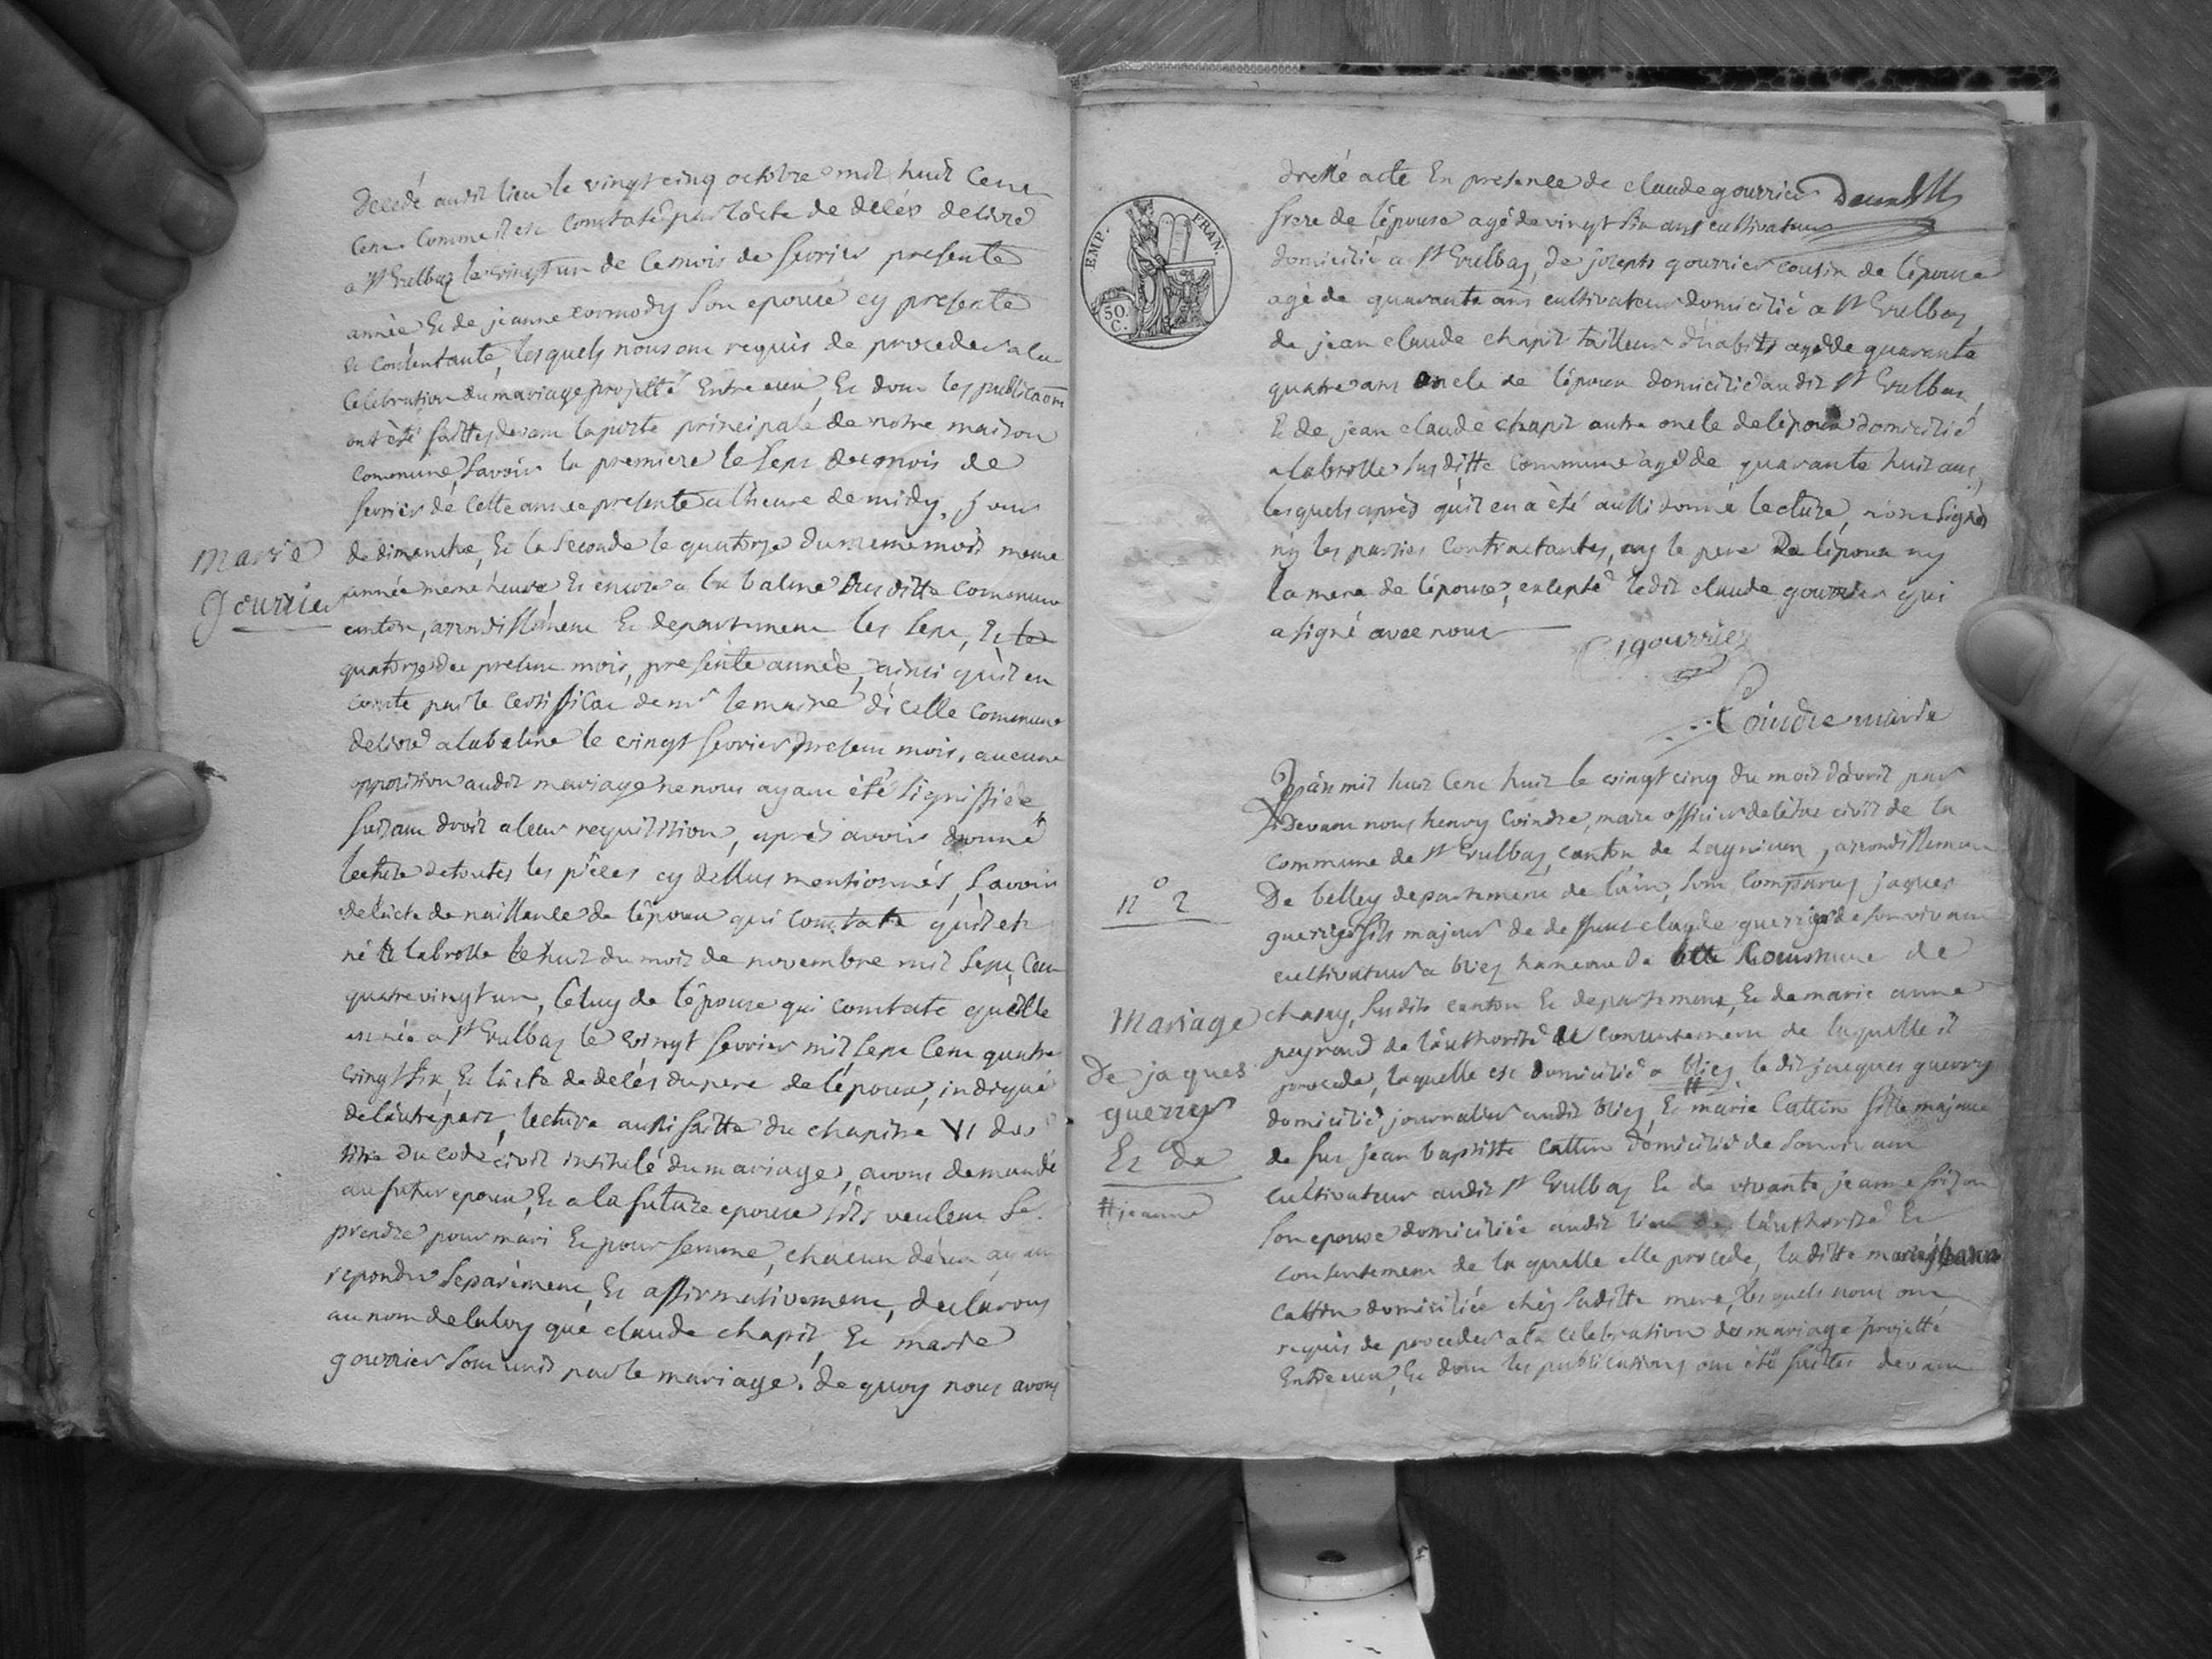 Decedé audit lieu le vingt cinq octobre mil huit cent
cinq comme il est constaté par l'acte de décés delivré
a St Vulbaz le vingt un de ce mois de fevrier presente
année Et de jeanne cormody son epouse cy presente
Et contentante, lesquels nous ont requis de proceder a la
celebration du mariage projetté Entre eux, Et dont les publicaõns
ont été faittes devant la porte principale de notre maison
commune, savoir la premiere le sept du mois de
fevrier de cette année presente a l'heure de midy, jour
de dimanche, Et la seconde le quatorze du meme mois meme
Marie
Gourrier
année meme heure Et encore a la balme susditte commune
canton, arrondissement Et departement les sept, Et le
quatorze du present mois, presente année, ainsi qu'il en
conste par le certifficat de mr le maire d'icelle commune
delivré a la balme le vingt fevrier present mois, aucune
opposition audit mariage ne nous ayant été signiffiée
faisant droit a leur requisition, aprés avoir donné
lecture de toutes les piéces cy dessus mentionnés, savoir
de l'acte de naissance de l'epoux qui constate qu'il est
né a labrosse le huit du mois de novembre mil sept cent
quatre vingt un, celuy de l'épouse qui constate qu'elle
est née a St Vulbaz le vingt fevrier mil sept cent quatre
vingt six, Et l'acte de decés du pere de l'époux, indiqué
de l'autre part, lecture aussi faitte du chapitre VI du
titre du code civil intitulé du mariage, avons demandé
au futur epoux, Et a la future epouse s'ils veulent se
prendre pour mari Et pour femme, chacun d'eux ayant
repondu separement, Et affirmativement, declarons
au nom de la loy que claude chapit, Et marie
gourrier sont unis par le mariage. de quoy nous avons
EMP. FRAN.
50. C.
dressé acte En presence de claude gourrier
frere de l'épouse agé de vingt six ans cultivateur
domicilié a St Vulbaz, de joseph gourrier cousin de l'épouse
agé de quarante ans cultivateur domicilié a St Vulbaz,
de jean claude chapit tailleur d'habits agé de quarante
quatre ans oncle de l'époux domicilié audit St Vulbaz,
Et de jean claude chapit autre oncle de l'époux domicilié
a labrosse susditte commune agé de quarante huit ans,
lesquels aprés qu'il en a été aussi donné lecture, n'ont signé
n'y les parties contractantes, ny le pere De l'époux ny
la mere de l'épouse, excepté ledit claude gourrier qui
a signé avec nous
C gourrier
Coindre maire
L'an mil huit cent huit le vingt cinq du mois d'avril par
Devant nous henry Coindre, maire officier de l'état civil de la
commune de St Vulbaz, canton de Lagnieu, arrondissement
n° 2
De belley departement de l'ain, sont comparus jaques
guerry fils majeur de deffunt claude guerry de son vivant
cultivateur a bliez hameau de la Commune de
Mariage
chazey, susdits canton Et departement, Et de marie anne
peyraud de l'authorité Et consentement de laquelle il
De jaques
procede, laquelle est domicilié a bliez, le dit jacques guerry
guerry
domicilié, journalier audit bliez, Et marie # Cattin fille majeure
Et de
de feu jean baptiste Cattin domicilié de son vivant
# jeanne
cultivateur audit St Vulbaz Et de vivante jeanne
son epouse domiciliée audit lieu de l'authorité Et
consentement de la quelle elle procede, la ditte marie jeanne
Cattin domiciliée chéz saditte mere, lesquels nous ont
requis de proceder a la celebration du mariage projetté
Entre eux, Et dont les publications ont été faittes devant